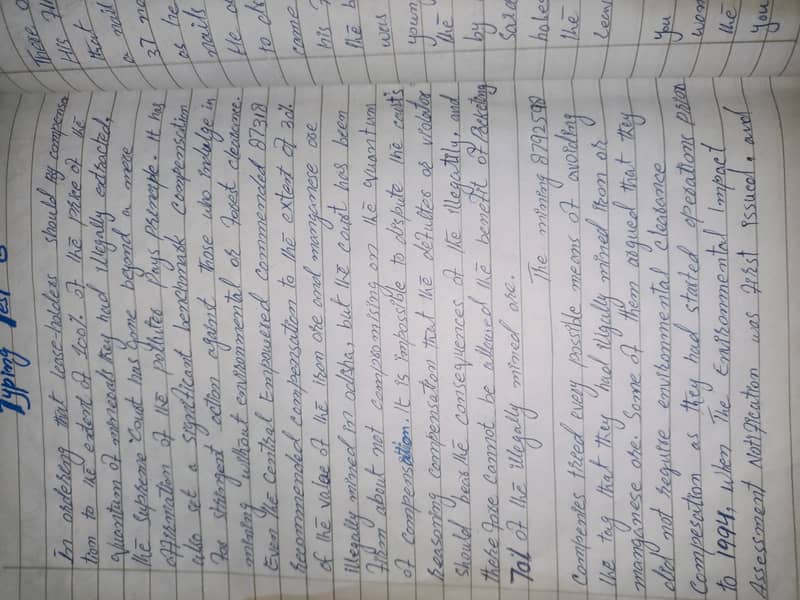 Typing Test
In ordering that lease-holders should pay compensa
tion to the extent of 100% of the price of the
quantum of minerals they had illegally extracted,
the supreme court has gone beyond a mere
affirmation of the polluter pays principe. It has
also set a significant benchmark compensation
for stringent action against those who indulge in
mining without environmental or forest clearance.
Even the Central Empowered commended 87318
Recommended compensation to the extent of 30%
of the value of the iron ore and manganese ore
illegally mined in odisha, but the court has been
firm about not compromising on the quantum
of compensation. It is impossible to dispute the court's
reasoning compensation that the defulter or violator
should bear the consequences of the illegatity, and
therefore cannot be allowed the benefit of
70% of the illegally mined ore.
The mining 8792590
companies tried every possible means of avoiding
the tag that they had illegally mined iron or
manganese ore. Some of them argued that they
did not require environmental clearance
Compesation as they had started operations prior
to 1994, when The Environmental Impact
Assessment Notification was first issued, and
There
His
that
a nail
37
as he
nails
He
to
come
his
the b
was
young
the
by
Said
holes
the
leave
you
woun
the
you